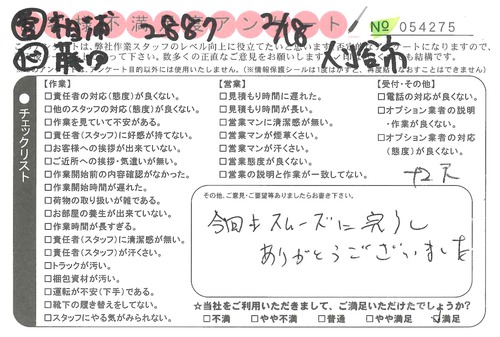 営 相浦 2887 2/18 No 054275
不満 アンケート
このアンケートは、弊社作業スタッフのレベル向上に役立てたいと思います
数多くの正直なご意見をお願いします
アンケート目的以外には使用いたしません。(※情報保護シールは1度はがすと、再度貼りなおすことはできません)
チェックリスト
【作業】
□責任者の対応(態度)が良くない。
□他のスタッフの対応(態度)が良くない。
□作業を見ていて不安がある。
□責任者(スタッフ)に好感が持てない。
□お客様への挨拶が出来ていない。
□ご近所への挨拶・気遣いが無い。
□作業開始前の内容確認がなかった。
□作業開始時間が遅れた。
□荷物の取り扱いが雑である。
□お部屋の養生が出来ていない。
□作業時間が長すぎる。
□責任者(スタッフ)に清潔感が無い。
□責任者(スタッフ)が汗くさい。
□トラックが汚い。
□梱包資材が汚い。
□運転が不安(下手)である。
□靴下の履き替えをしてない。
□スタッフにやる気がみられない。
【営業】
□見積もり時間に遅れた。
□見積もり時間が長い。
□営業マンに清潔感が無い。
□営業マンが煙草くさい。
□営業マンが汗くさい。
□営業態度が良くない。
□営業の説明と作業が一致してない。
【受付・その他】
□電話の対応が良くない。
□オプション業者の説明
・作業が良くない。
□オプション業者の対応
(態度)が良くない。
その他、ご意見・ご要望等ありましたらお書き下さい。
今回もスムーズに完了し
ありがとうございました
☆当社をご利用いただきまして、ご満足いただけたでしょうか?
□不満 □やや不満 □普通 □やや満足 □満足